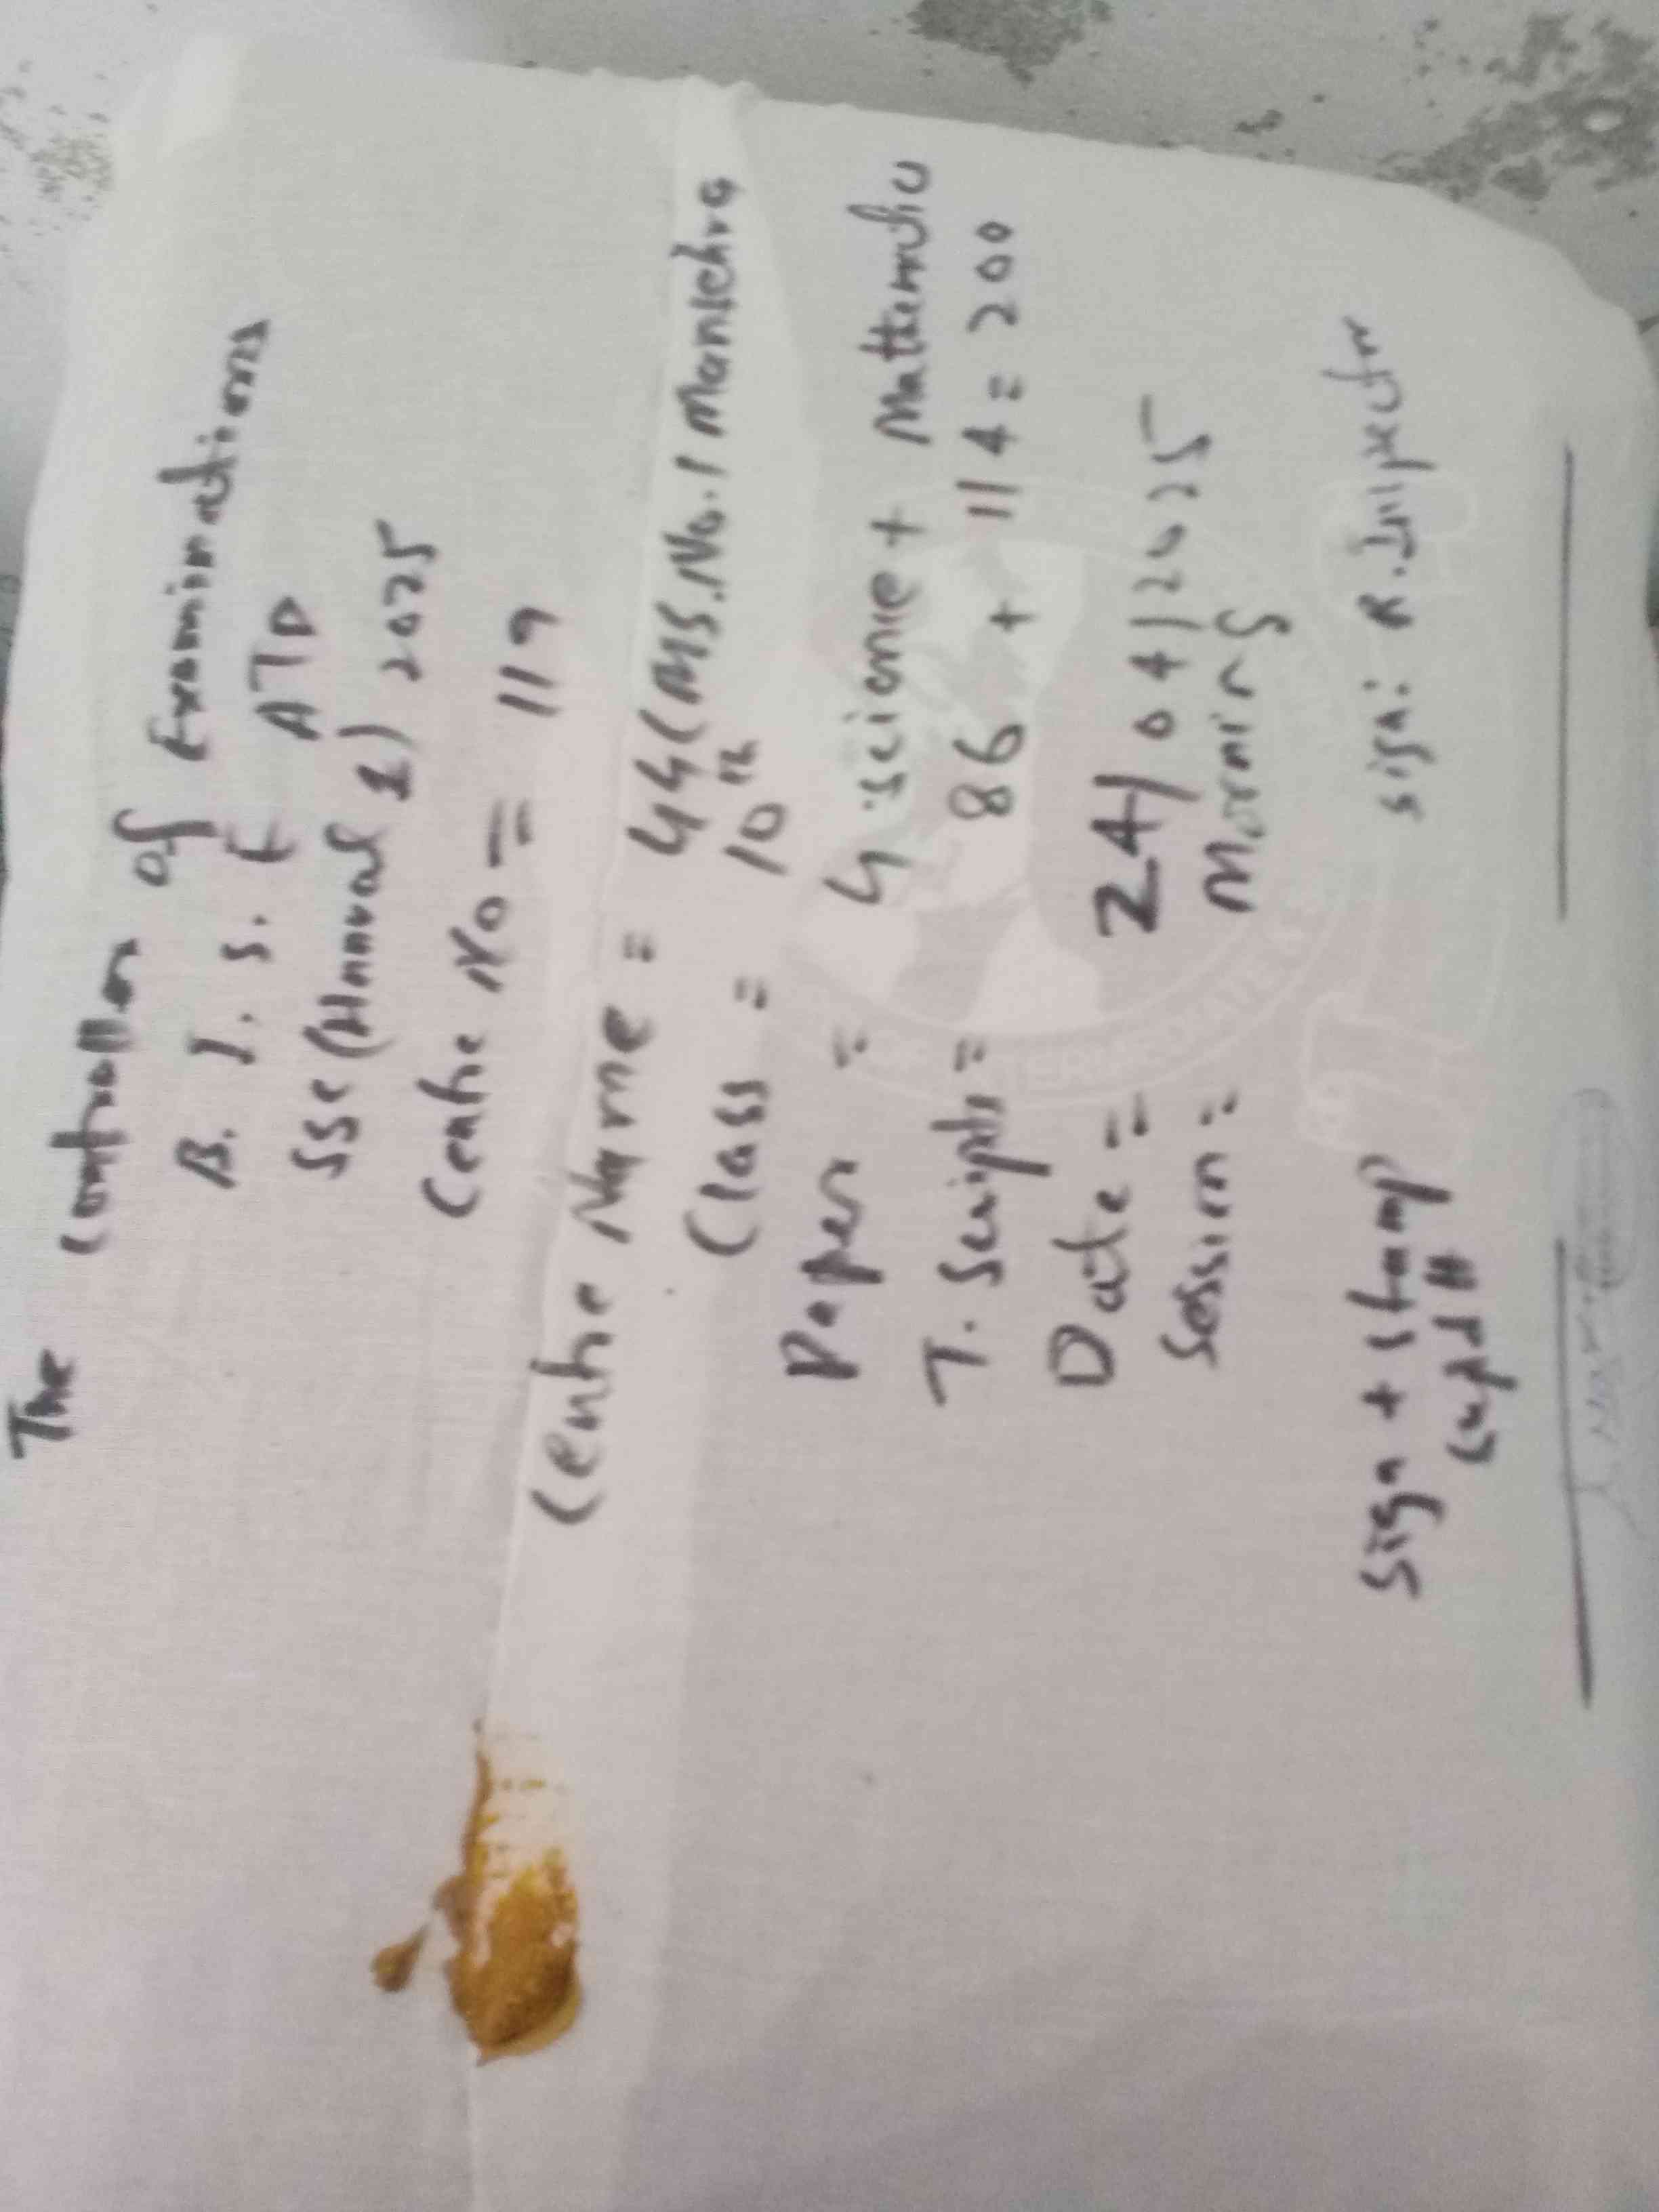 The
Controller of Examinations
B. I. S. E ATD
SSC (Annual 1) 2025
Centre No = 119
Centre Name = GG(MS.No.1 Mansehra
Class = 10th
Paper = G science + Mathematic
T. Scripts = 86 + 114 = 200
Date = 24/04/2025
Session = Morning
Sign + stamp sign: R. Inspector
Supdtt